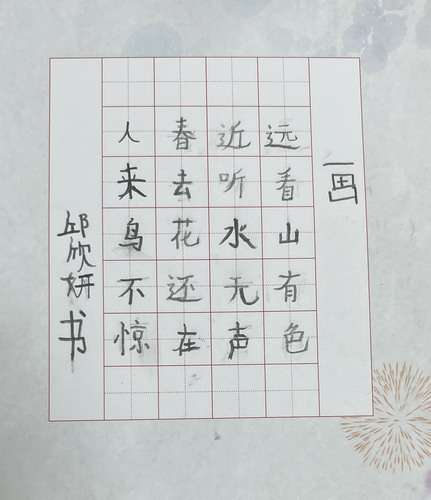 画
远看山有色
近听水无声
春去花还在
人来鸟不惊
邱欣妍书